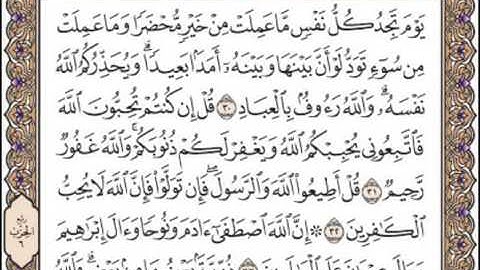 يَوْمَ تَجِدُ كُلُّ نَفْسٍ مَّا عَمِلَتْ مِنْ خَيْرٍ مُّحْضَرًا وَمَا عَمِلَتْ
مِن سُوٓءٍ تَوَدُّ لَوْ أَنَّ بَيْنَهَا وَبَيْنَهُۥٓ أَمَدًۢا بَعِيدًا ۗ وَيُحَذِّرُكُمُ ٱللَّهُ
نَفْسَهُۥ ۗ وَٱللَّهُ رَءُوفٌۢ بِٱلْعِبَادِ ٣٠ قُلْ إِن كُنتُمْ تُحِبُّونَ ٱللَّهَ
فَٱتَّبِعُونِى يُحْبِبْكُمُ ٱللَّهُ وَيَغْفِرْ لَكُمْ ذُنُوبَكُمْ ۗ وَٱللَّهُ غَفُورٌ
رَّحِيمٌ ٣١ قُلْ أَطِيعُوا۟ ٱللَّهَ وَٱلرَّسُولَ ۖ فَإِن تَوَلَّوْا۟ فَإِنَّ ٱللَّهَ لَا يُحِبُّ
ٱلْكَٰفِرِينَ ٣٢ ۞ إِنَّ ٱللَّهَ ٱصْطَفَىٰٓ ءَادَمَ وَنُوحًا وَءَالَ إِبْرَٰهِيمَ
ربع
الحزب
٦